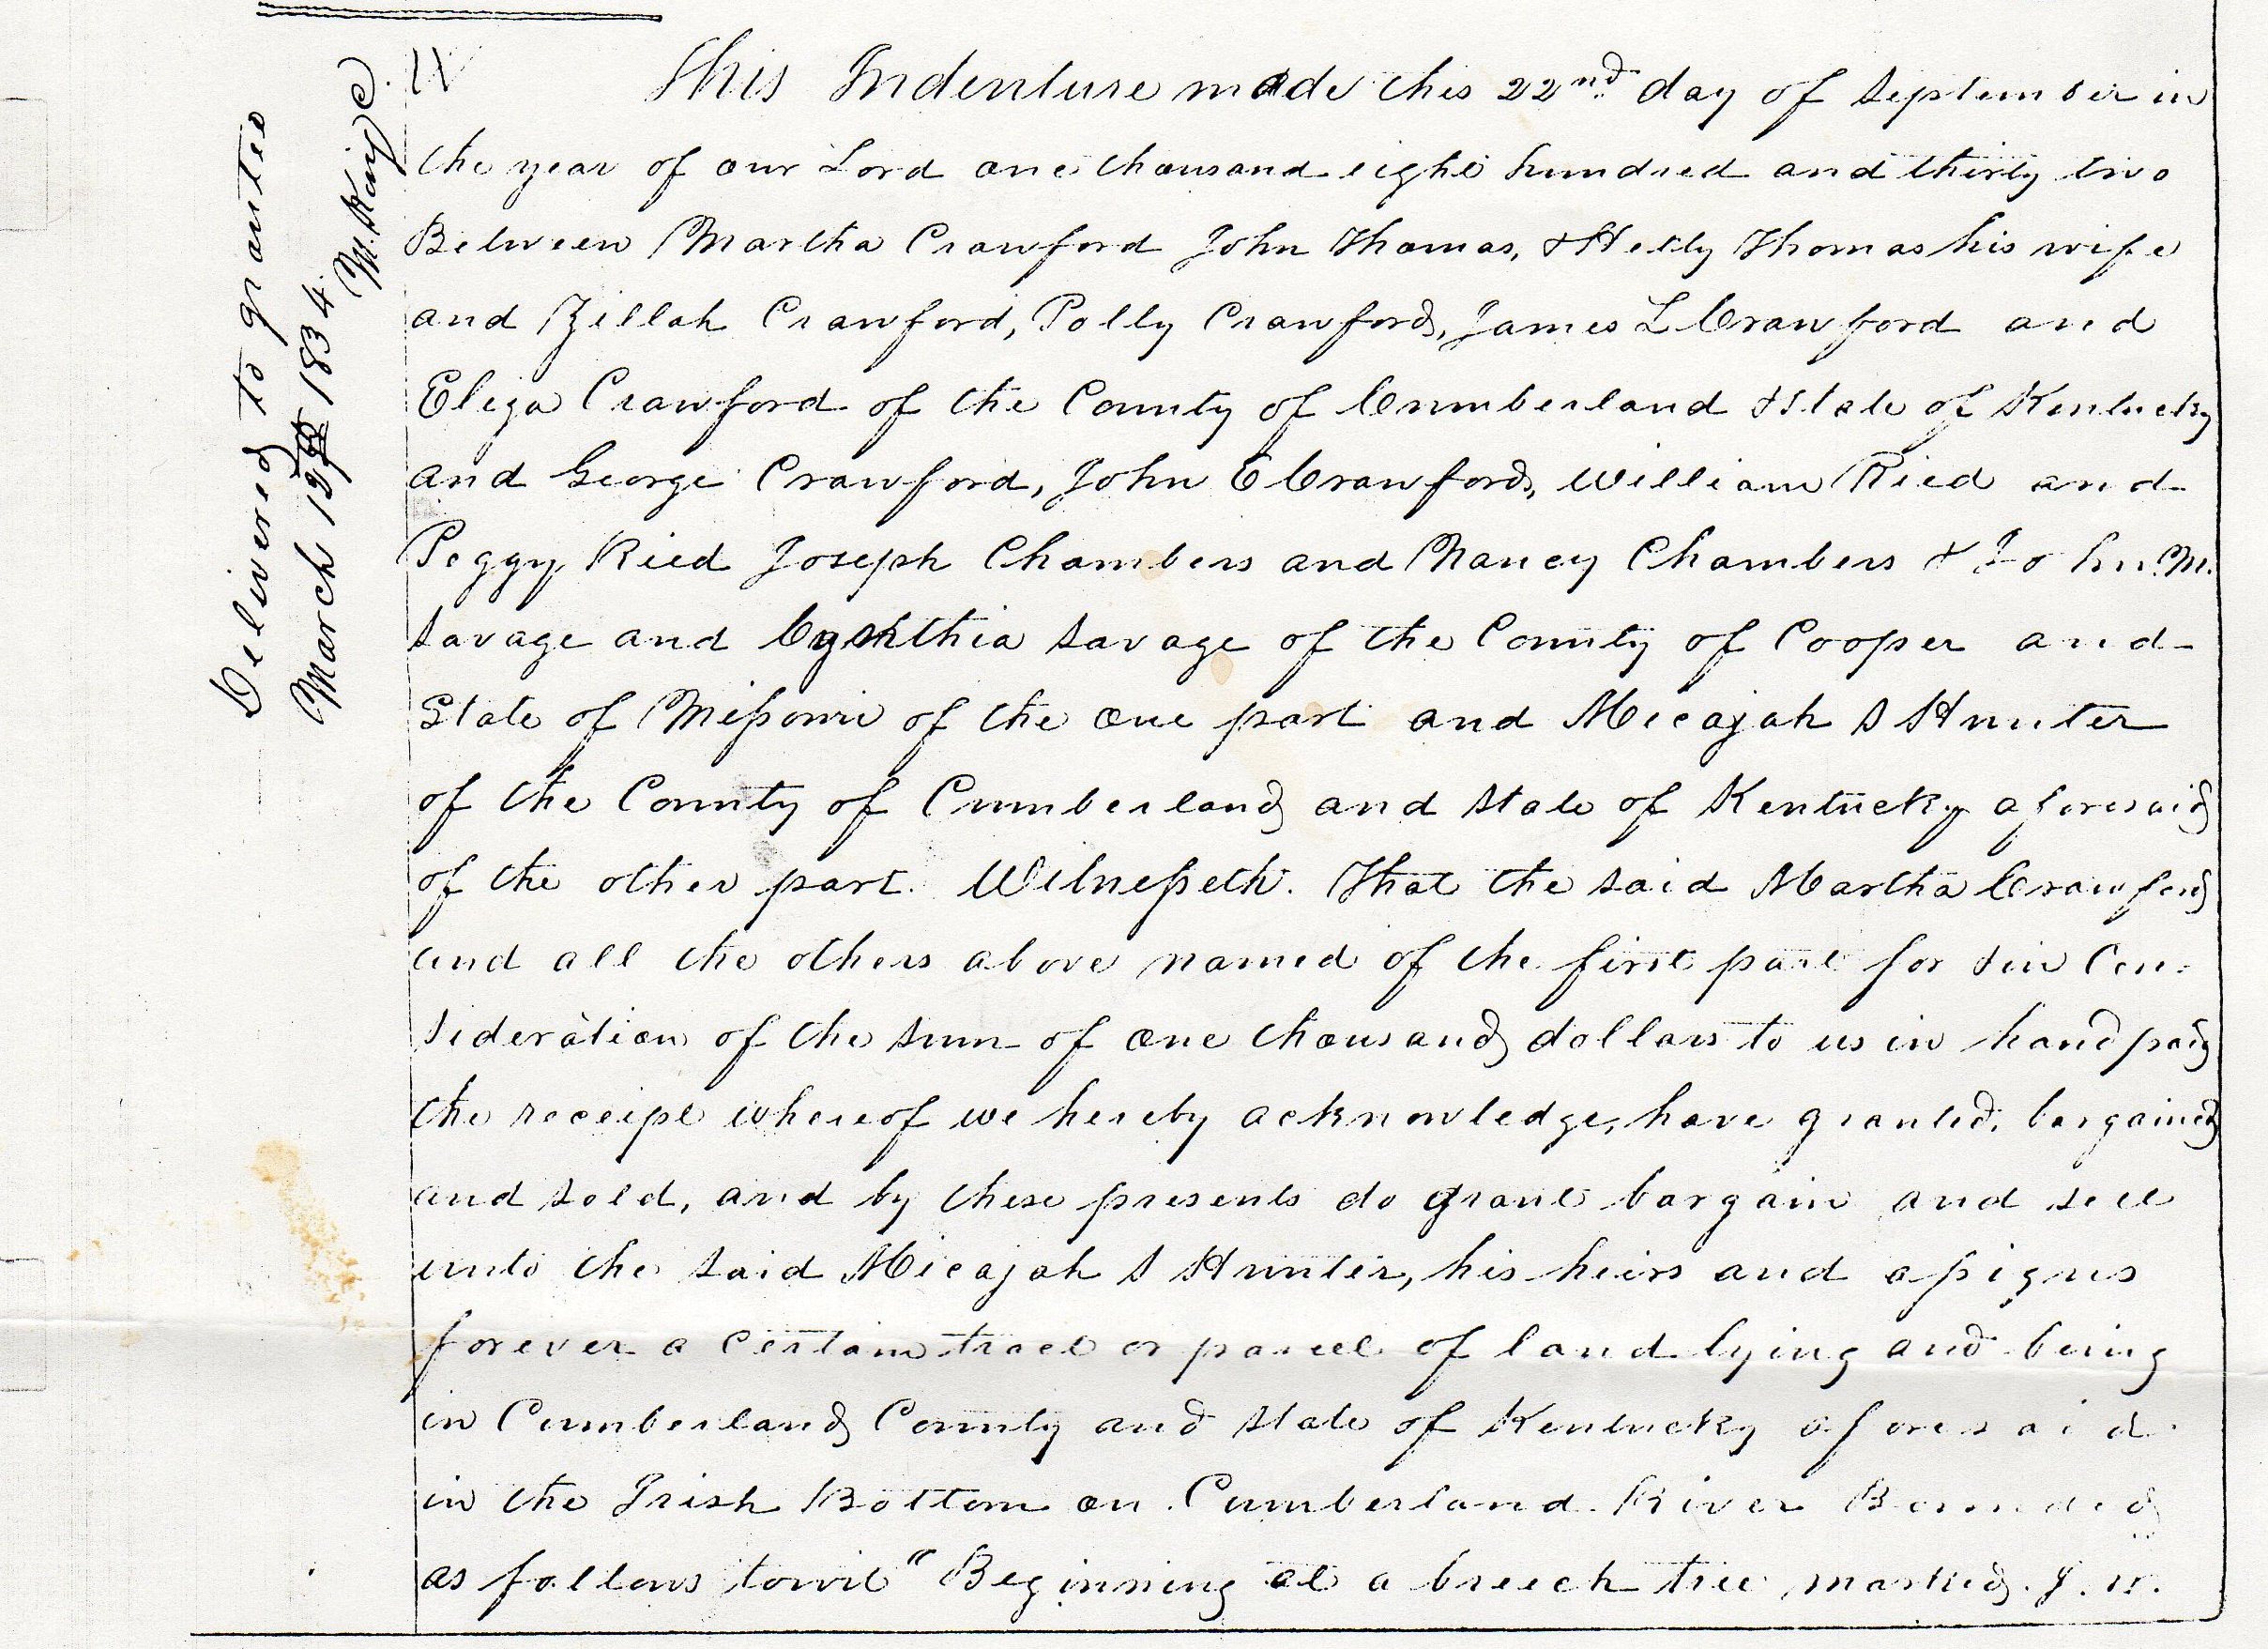 Delivered to grantee
March 12th 1834
M. King C.
This Indenture made this 22nd day of September in
the year of our Lord one thousand eight hundred and thirty two
Between Martha Crawford John Thomas, & Hetty Thomas his wife
and Zillah Crawford, Polly Crawford, James L Crawford and
Eliza Crawford of the County of Cumberland & State of Kentucky
and George Crawford, John E Crawford, William Ried and
Peggy Ried Joseph Chambers and Nancy Chambers & John M.
Savage and Cynthia Savage of the County of Cooper and
State of Missouri of the one part and Micajah S Hunter
of the County of Cumberland and State of Kentucky aforesaid
of the other part. Witnesseth. That the said Martha Crawford
and all the others above named of the first part for & in Con-
sideration of the sum of one thousand dollars to us in hand paid
the receipt whereof we hereby acknowledge, have granted, bargained
and sold, and by these presents do grant bargain and sell
unto the said Micajah S Hunter, his heirs and assigns
forever a certain tract or parcel of land lying and being
in Cumberland County and State of Kentucky aforesaid
in the Irish Bottom on Cumberland River Bounded
as follows towit" Beginning at a breech tree marked J.